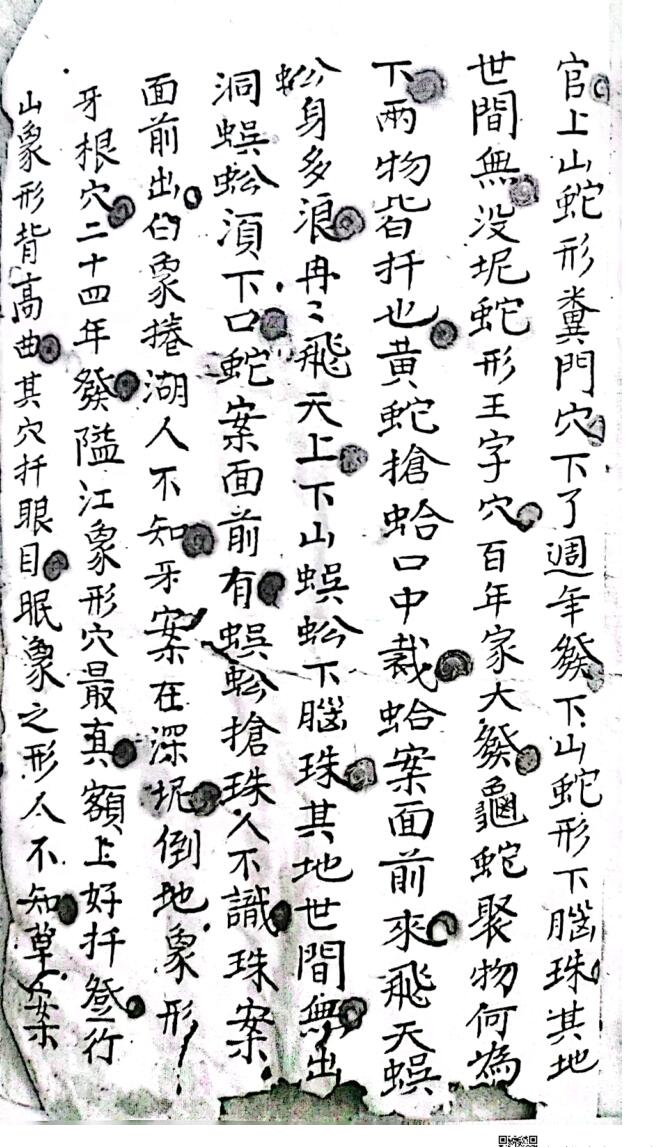 官上山蛇形糞門穴下了週年發下山蛇形下腦珠其地
世間無没坭蛇形王字穴百年家大發龜蛇聚物何為
下兩物皆扦也黃蛇搶蛤口中裁蛤案面前來飛天蜈
蚣身多浪冉〻飛天上下山蜈蚣下腦珠其地世間無出
洞蜈蚣湏下口蛇案面前有蜈蚣搶珠人不識珠案
面前出白象捲湖人不知牙案在深坭倒地象形
牙根穴二十四年發隘江象形穴最真額上好扦登行
山象形背高曲其穴扦眼目眠象之形人不知草案